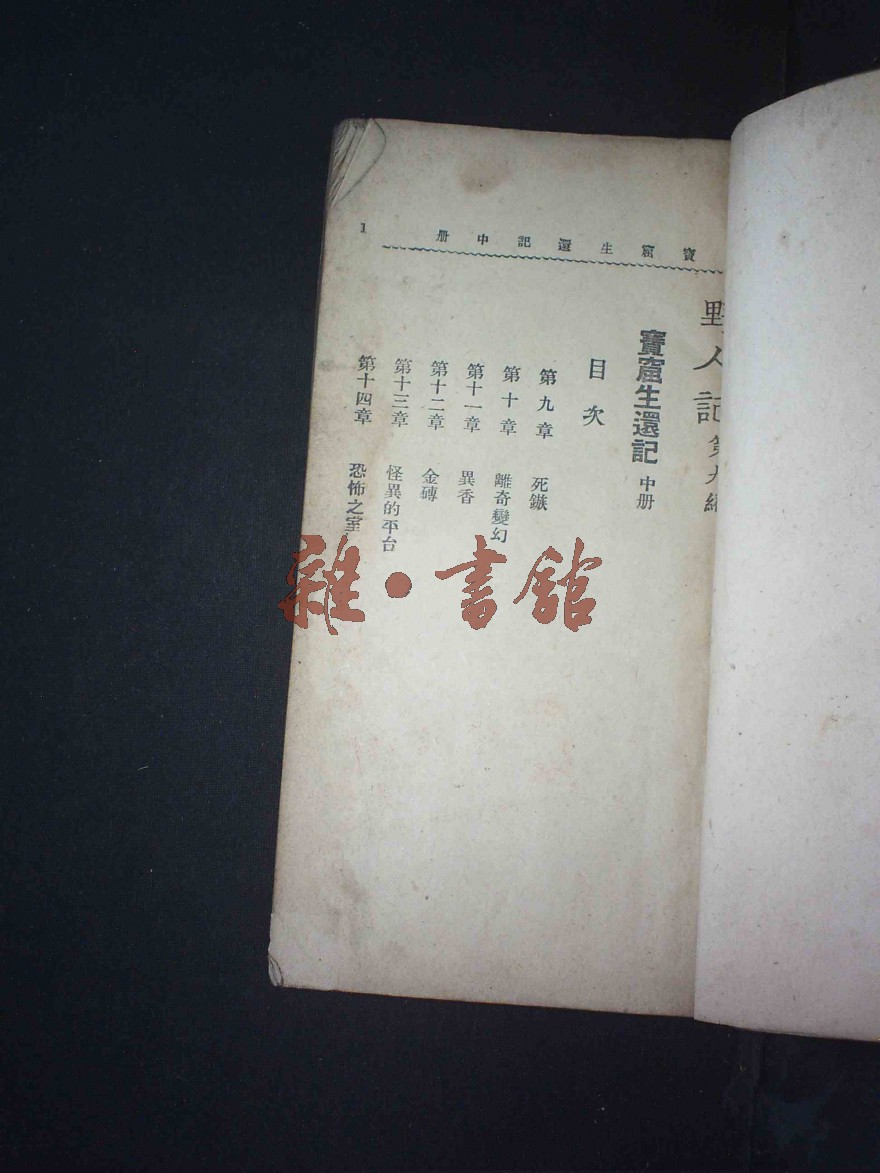 寶窟生還記中册
1
野人記 第九編
寶窟生還記 中册
目次
第九章 死鏃
第十章 離奇變幻
第十一章 異香
第十二章 金磚
第十三章 怪異的平台
第十四章 恐怖之室
雜·書館